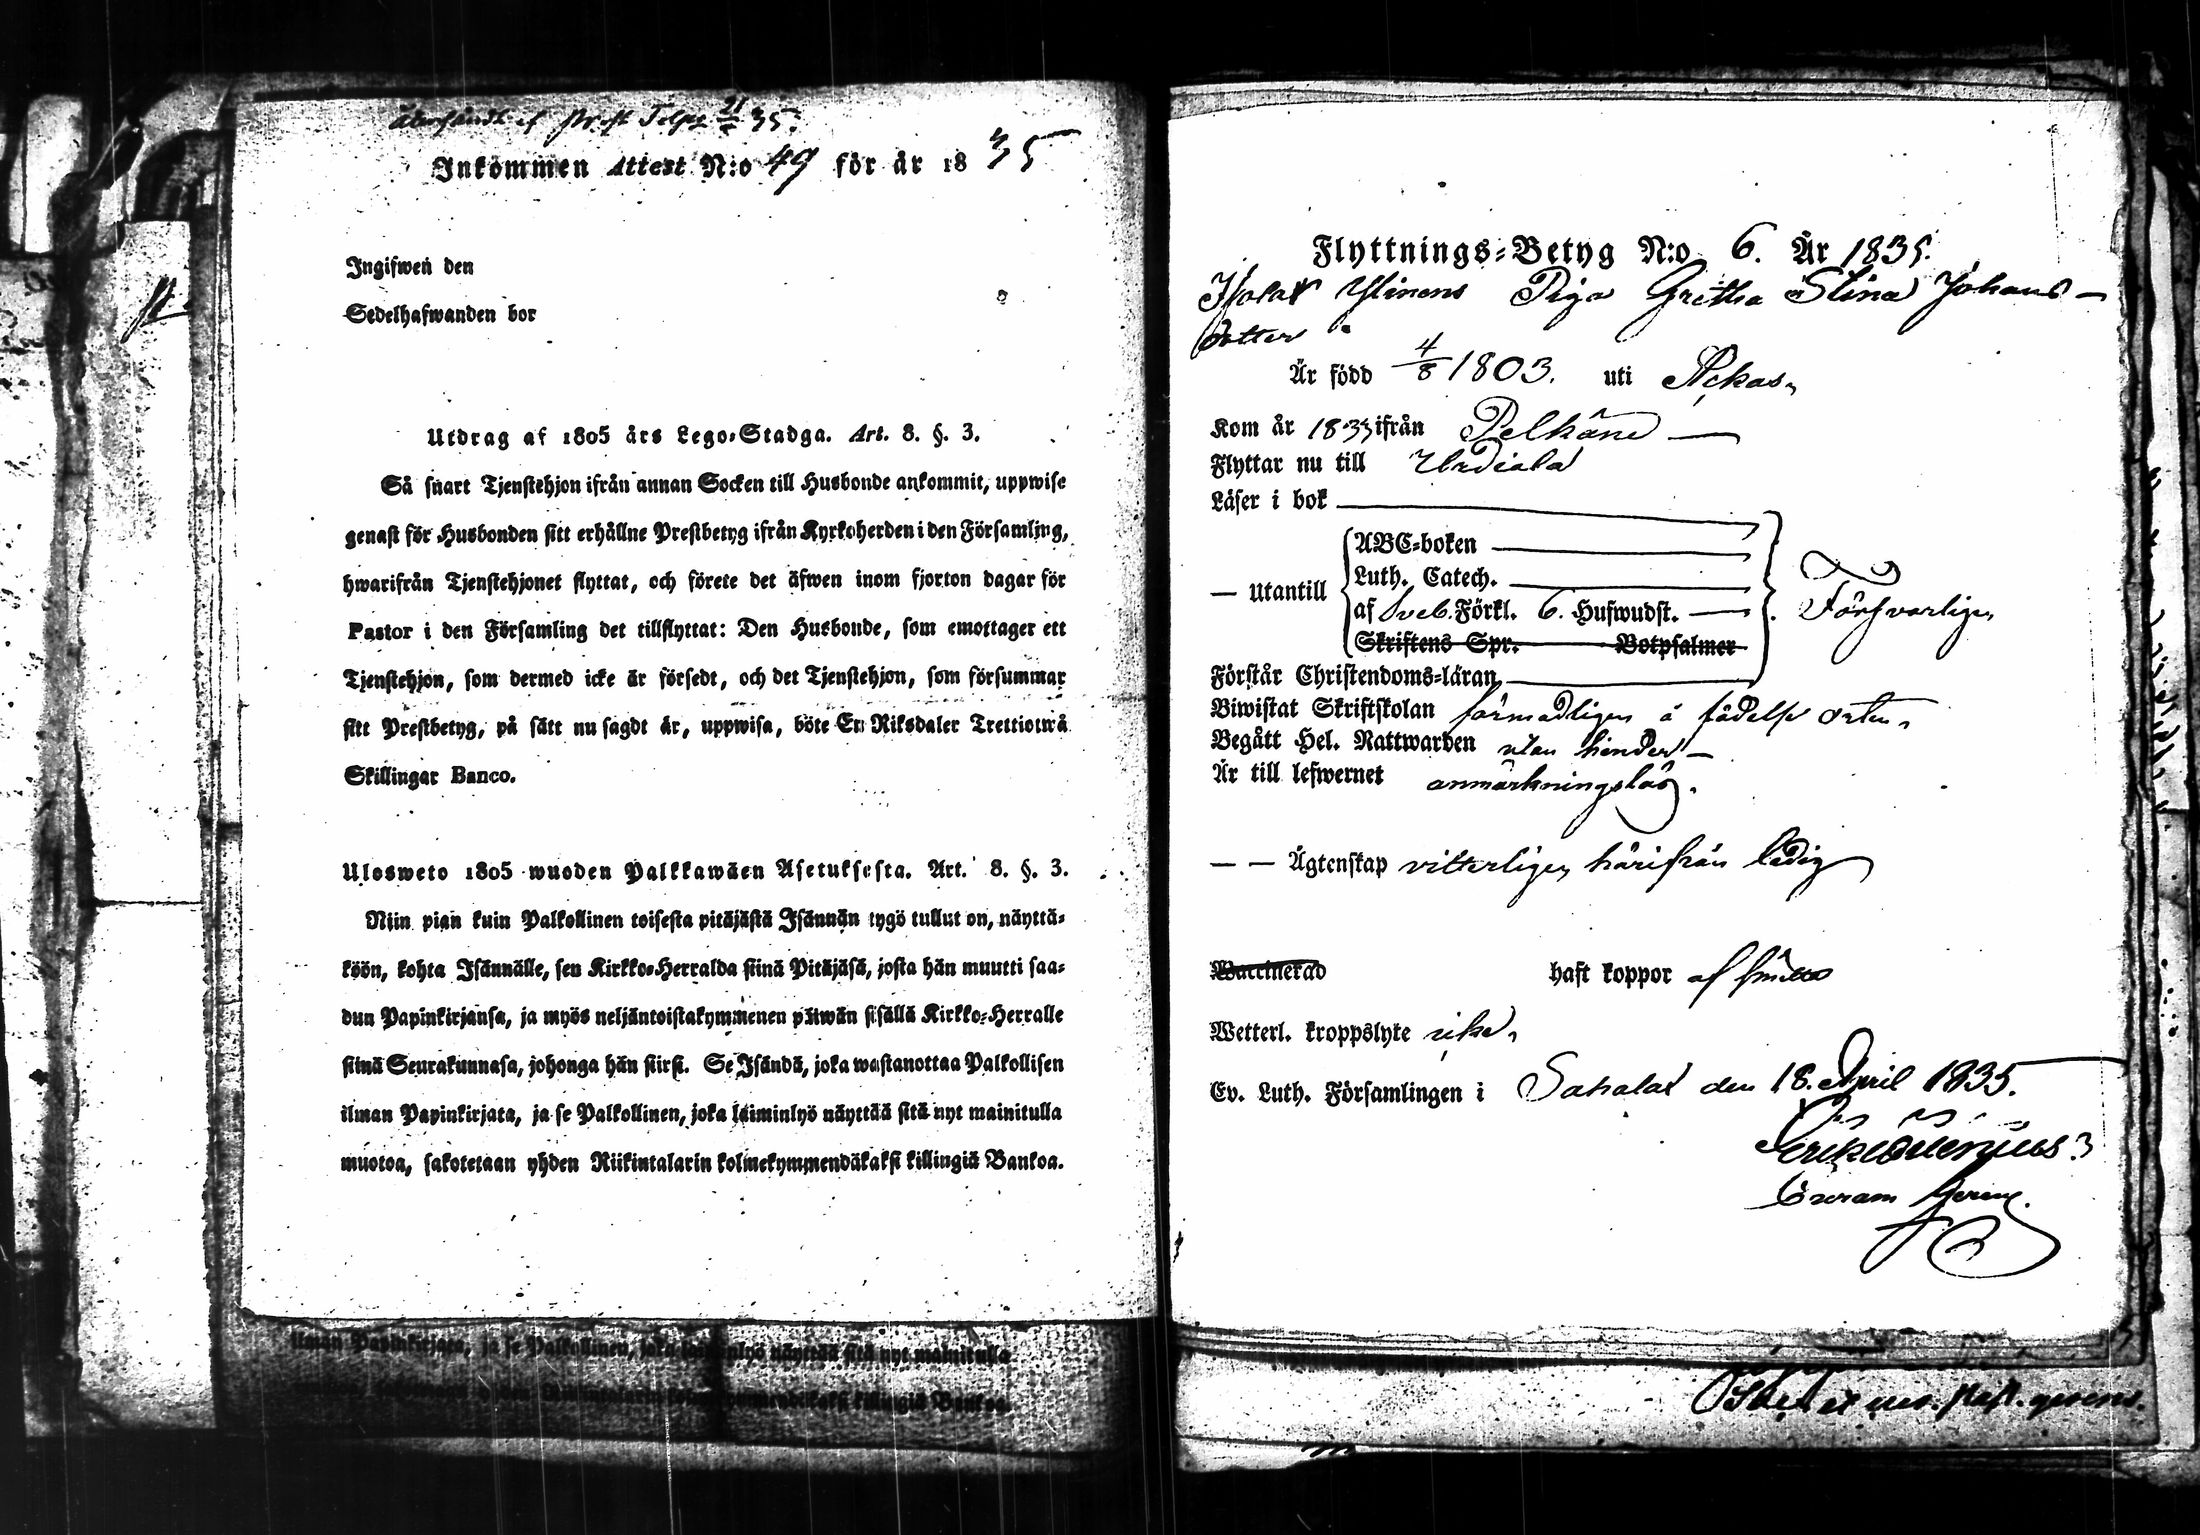 Inkommen Attest N:o 49 för år 1835
Ingifwen den
Sedelhafwanden bor
Utdrag af 1805 års Lego-Stadga. Art. 8. §. 3.
Så snart Tjenstehjon ifrån annan Socken till Husbonde ankommit, uppwise
genast för Husbonden sitt erhållne Prestbetyg ifrån Kyrkoherden i den Församling,
hwarifrån Tjenstehjonet flyttat, och förete det äfwen inom fjorton dagar för
Pastor i den Församling det tillflyttat: Den Husbonde, som emottager ett
Tjenstehjon, som dermed icke är försedt, och det Tjenstehjon, som försummar
sitt Prestbetyg, på sätt nu sagdt är, uppwisa, böte En Riksdaler Trettiotwå
Skillingar Banco.
Ulosweto 1805 wuoden Palkkawäen Asetuksesta. Art. 8. §. 3.
Niin pian kuin Palkollinen toisesta pitäjästä Isännän tygö tullut on, näyttä-
köön, kohta Isännälle, sen Kirkko-Herralda siinä Pitäjäsä, josta hän muutti saa-
dun Papinkirjansa, ja myös neljäntoistakymmenen päiwän sisällä Kirkko-Herralle
siinä Seurakunnasa, johonga hän siirsi. Se Isändä, joka wastanottaa Palkollisen
ilman Papinkirjata, ja se Palkollinen, joka laiminlyö näyttää sitä nyt mainitulla
muotoa, sakotetaan yhden Riikintalarin kolmekymmendäkaksi killingiä Bankoa.
ilman Papinkirjata, ja se Palkollinen, joka laiminlyö näyttää sitä nyt mainitulla
killingiä Bankoa.
Flyttnings-Betyg N:o 6. År 1835.
Piga Gretha Stina Johans-
dotter
Är född 4/8 1803. uti Ackas,
Kom år 1833 ifrån Pelkäne
Flyttar nu till Urdiala
Läser i bok
— Utantill
ABC-boken
Luth. Catech.
af Sveb. Förkl. 6. Hufwudst. Försvarligen
Skriftens Spr. Botpsalmer
Förstår Christendoms-läran
Biwistat Skriftskolan förmodligen å födelse orten,
Begått Hel. Nattwarden utan hinder
Är till lefwernet anmärkningslös.
— — Ägtenskap vitterligen härifrån ledig
Waccinerad haft koppor
Wetterl. kroppslyte icke,
Ev. Luth. Församlingen i Sahalax den 18. April 1835.